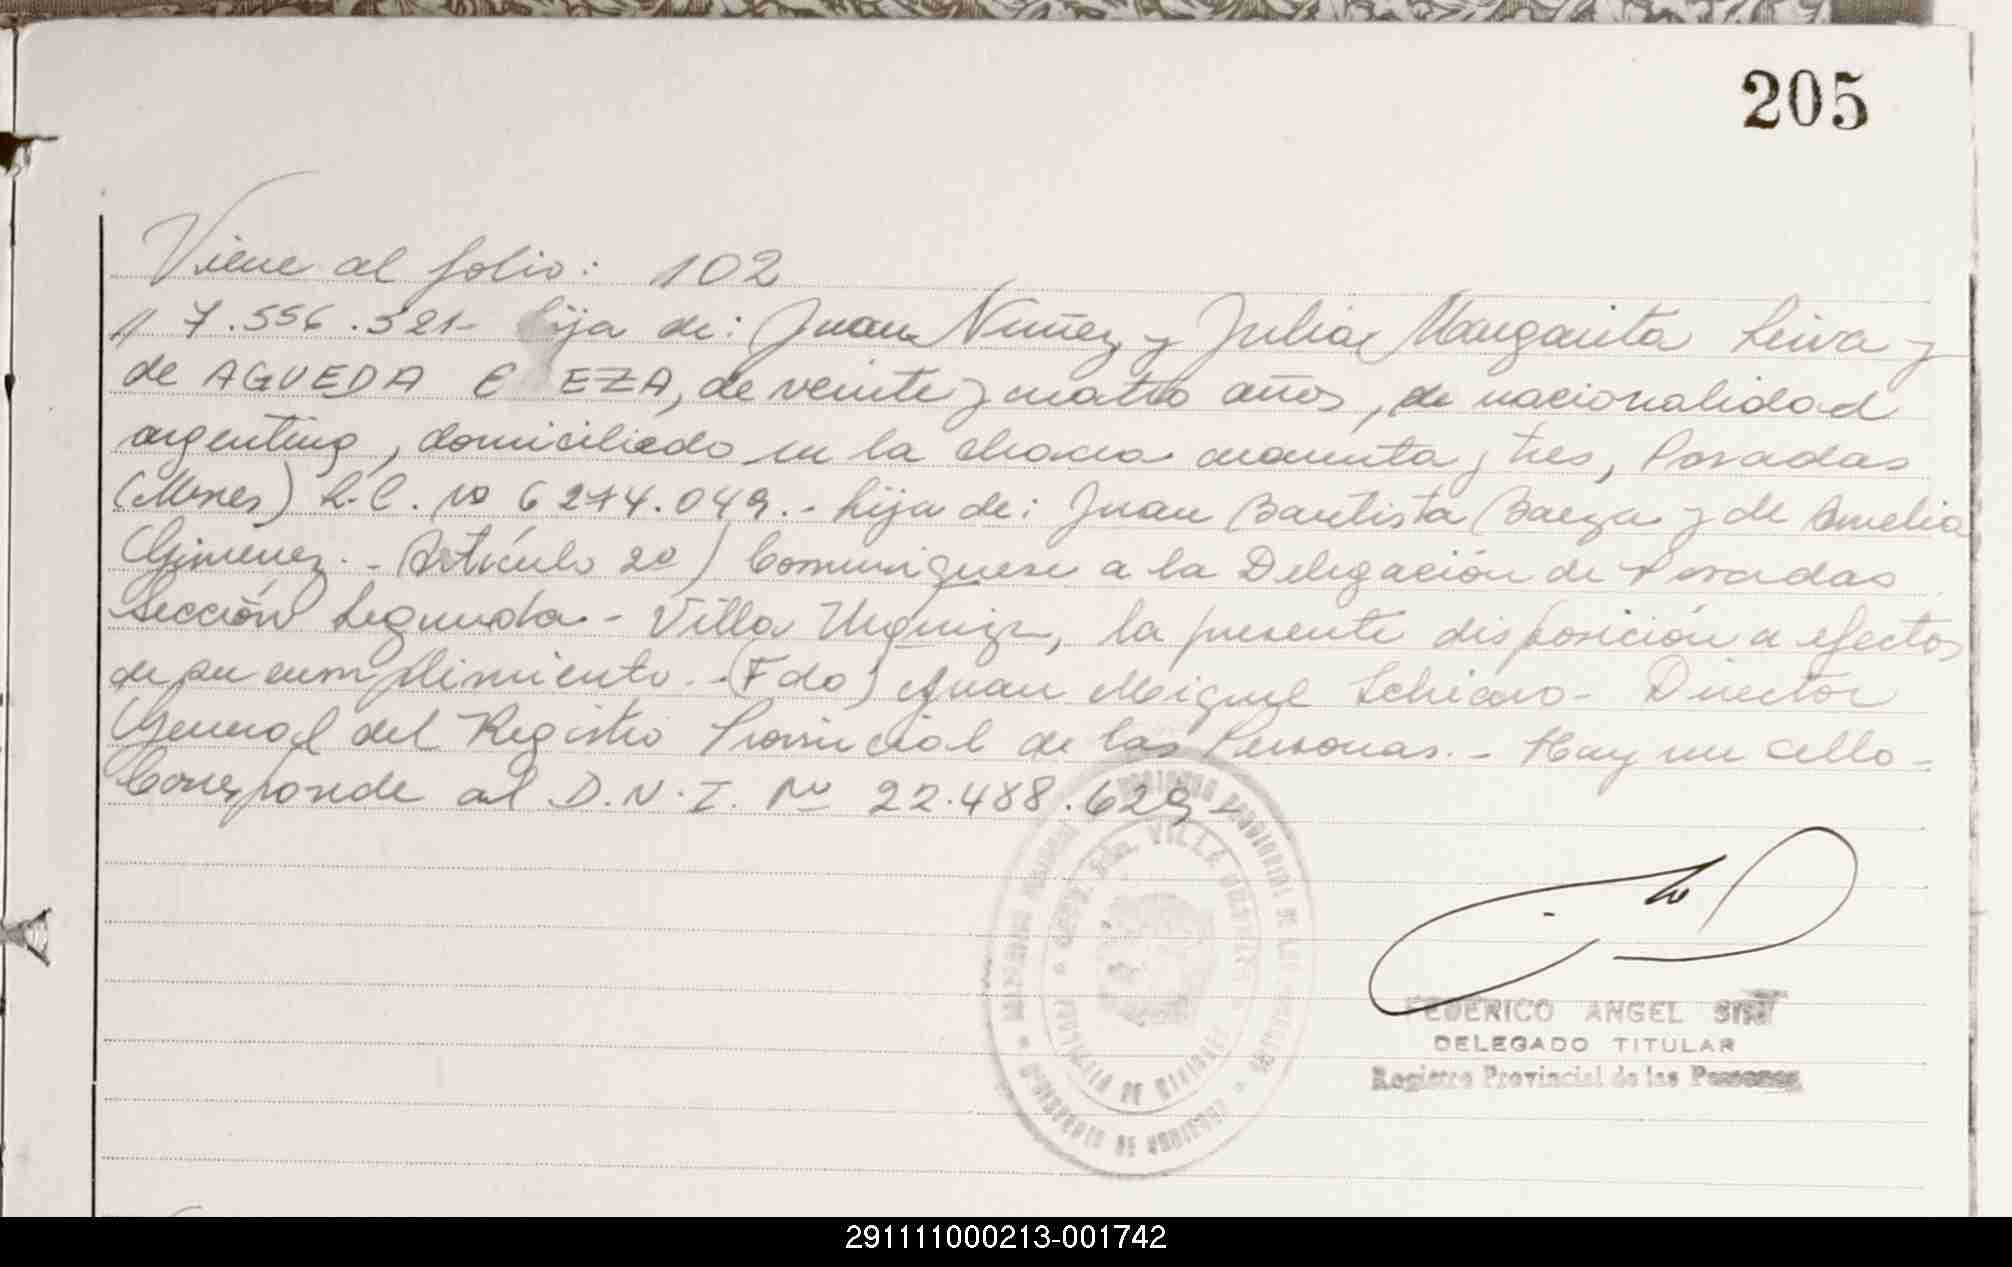 205
Viene al folio: 102
7.556.321- hija de: Juan Nuñez y Julia Margarita Leiva y
de AGUEDA EZA, de veinte y cuatro años, de nacionalidad
argentina, domiciliado en la chacra cuarenta y tres, Posadas
(Mnes) L.C. Nº 6274.049.- hija de: Juan Bautista Baeza y de Amelia
Gimenez.- Artículo 2º) Comuniquese a la Delegación de Posadas
Sección Segunda - Villa Urquiza, la presente disposición a efectos
de su cumplimiento.-(Fdo) Juan Miguel Schiavo - Director
General del Registro Provincial de las Personas.- Hay un cello-
Corresponde al D.N.I. Nº 22.488.629-
VILLA URQUIZA
PROVINCIA DE MISIONES
FEDERICO ANGEL
DELEGADO TITULAR
Registro Provincial de las Personas
291111000213-001742